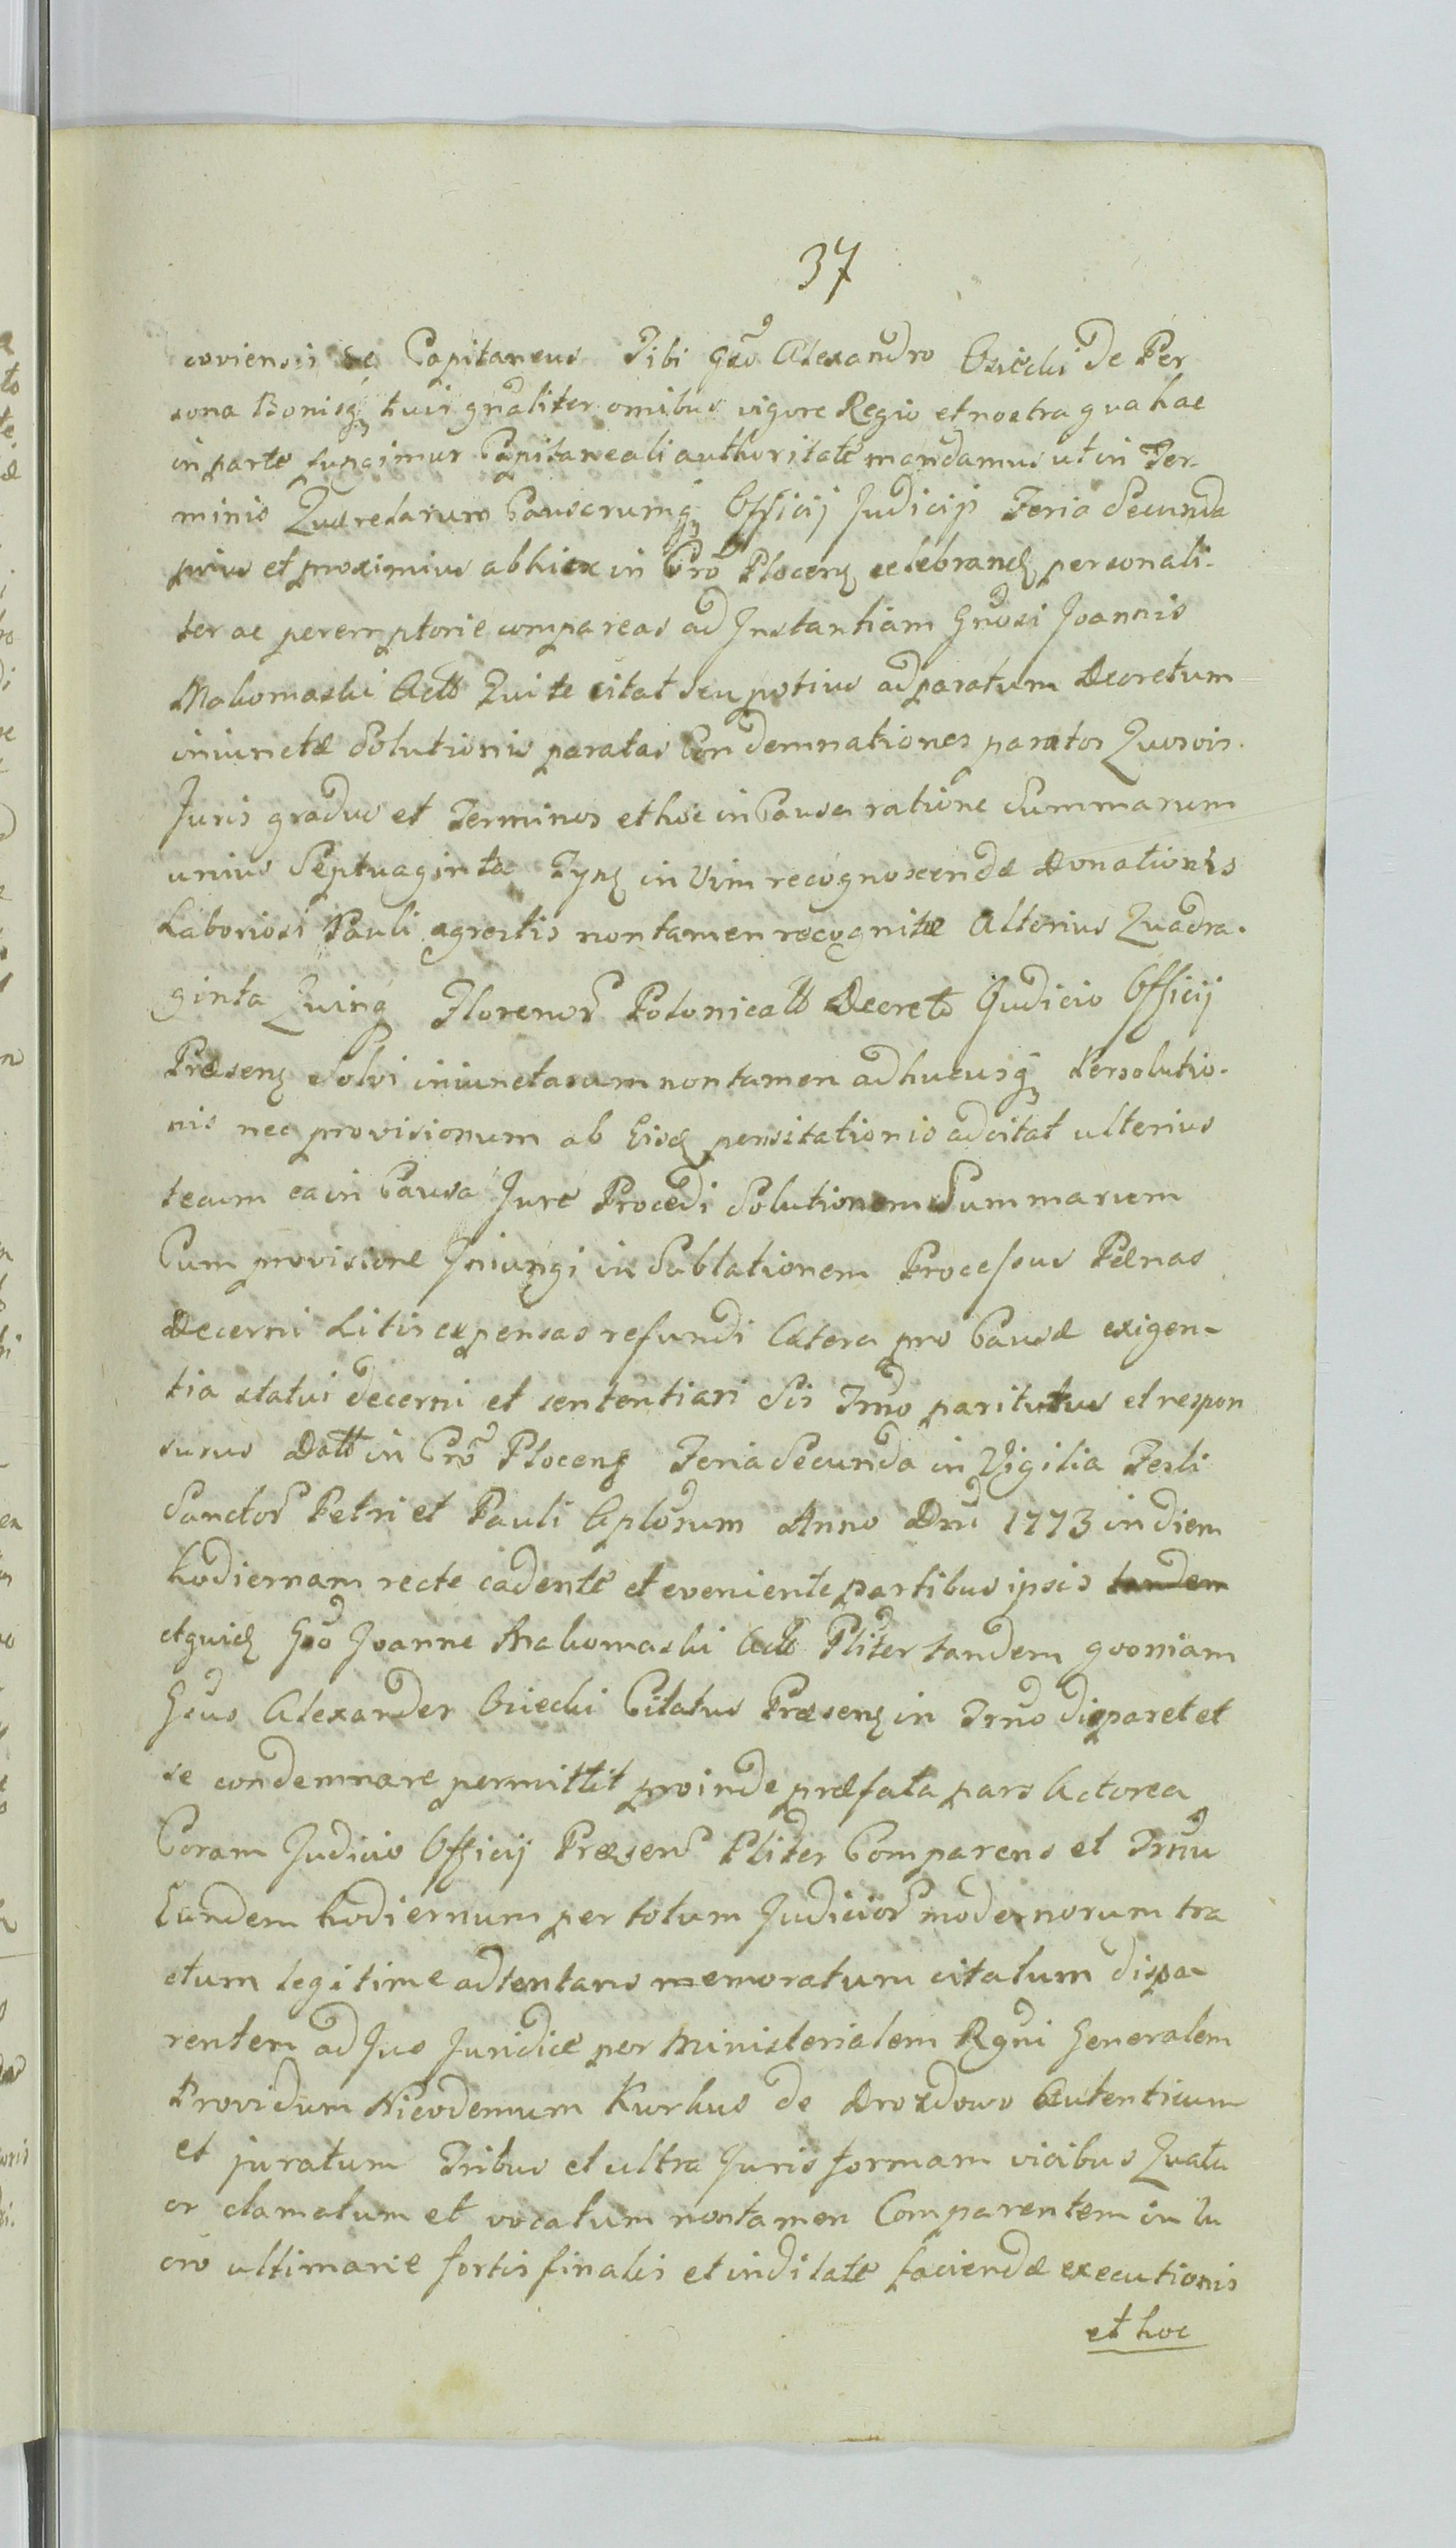 37
coviensis &c Capitaneus Tibi Gsō Alexandro Osiecki de Per
sona Bonisq₃ tuis gnãliter omibus vigore Regio et nostra qua hac
in parte fungimur Capitaneali authoritate mandamus ut in Ter-
minis Querelarum Causarumq₃ Officij Judicij Feria Secunda
prius et proximius abhinc in Cro Plocenʒ celebrandʒ personali-
ter ac peremptorie compareas ad Instantiam Gnosi Joannis
Makomaski Actt Qui te citat seu potius ad paratum Decretum
iniunctæ Solutionis paratas Condemnationes paratos Quosvis
Juris gradus et Terminos et hoc in Causa ratione Summarum
unius Septuaginta Tynʒ in Vim recognoscendæ Donationis
Laboriosi Pauli agrestis non tamen recognitæ Alterius Quadra-
ginta Quinq Florenor Polonicatt Decreto Judicio Officij
Præsenʒ solvi iniunctarum non tamen adhucusq₃ Persolutio-
nis nec provisionum ab Eisdʒ pensitationis ad citat ulterius
tecum ea in Causa Jure Procedi Solutionem Summarum
Cum provisione Iniungi in Sublationem Processus Pænas
Decerni Litis expensas refundi Cætera pro Causæ exigen-
tia statui decerni et sententiari Sis Trno pariturus et respon
surus Datt in Cro Plocenʒ Feria Secunda in Vigilia Festi
Sanctor Petri et Pauli Aplorum Anno Dni 1773 in diem
hodiernam recte cadente et eveniente partibus ipsis tandem
et quidʒ Gso Joanne Makomaski Actt Pliter tandem quoniam
Gsus Alexander Osiecki Citatus Præsenʒ in Trno disparet et
se condemnare permittit proinde præfata pars Actorea
Coram Judicio Officij Præsen Pliter Comparens et Trnu
Eundem hodiernum per totum Judicior modernorum tra
ctum legitime adtentans memoratum citatum dispa-
rentem ad Jus Juridice per Ministerialem Rgni Generalem
Providum Nicodemum Kurkus de Drozdowo Autenticum
et juratum Tribus et ultra Juris formam vicibus Quatu
or clamatum et vocatum non tamen Comparentem in lu
cro ultimarie fortis finalis et indilate faciendæ executionis
et hoc